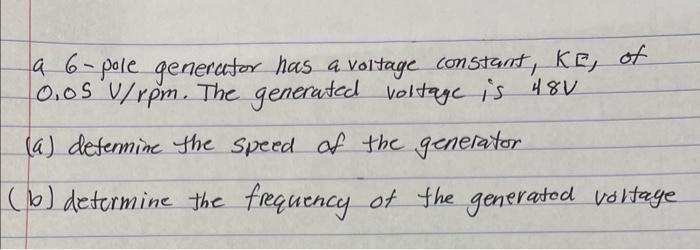 a 6-pole generator has a voltage constant, KE, of
0.05 V/rpm. The generated voltage is 48V
(a) determine the speed of the generator
(b) determine the frequency of the generated voltage